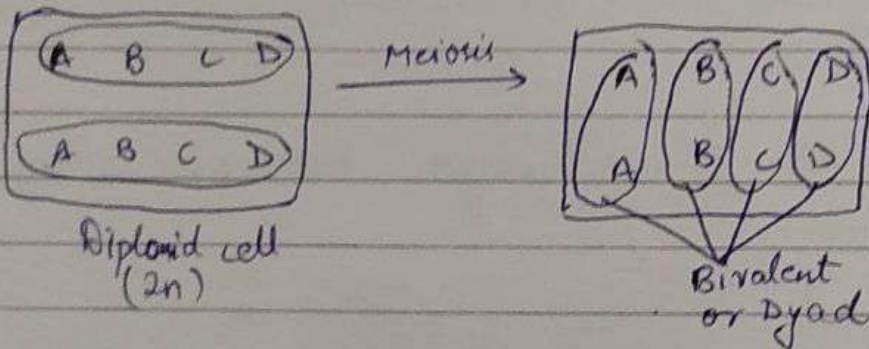 A B C D
A B C D
Diploid cell
(2n)
Meiosis
A B C D
A B C D
Bivalent
or Dyad